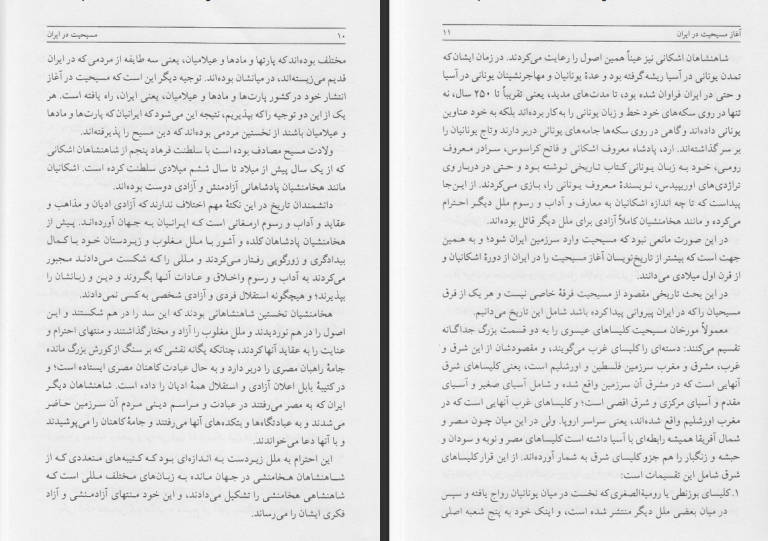 ۱۰ مسیحیت در ایران
مختلف بوده‌اند که پارتها و مادها و عیلامیان، یعنی سه طایفه از مردمی که در ایران
قدیم می‌زیسته‌اند، در میانشان بوده‌اند. توجیه دیگر این است که مسیحیت در آغاز
انتشار خود در کشور پارت‌ها و مادها و عیلامیان، یعنی ایران، راه یافته است. هر
یک از این دو توجیه را که بپذیریم، نتیجه این می‌شود که ایرانیان که پارت‌ها و مادها
و عیلامیان باشند از نخستین مردمی بوده‌اند که دین مسیح را پذیرفته‌اند.
ولادت مسیح مصادف بوده است با سلطنت فرهاد پنجم از شاهنشاهان اشکانی
که از یک سال پیش از میلاد تا سال ششم میلادی سلطنت کرده است. اشکانیان
مانند هخامنشیان پادشاهانی آزادمنش و آزادی دوست بوده‌اند.
دانشمندان تاریخ در این نکتهٔ مهم اختلاف ندارند که آزادی ادیان و مذاهب و
عقاید و آداب و رسوم ارمغانی است که ایرانیان به جهان آورده‌اند. پیش از
هخامنشیان پادشاهان کلده و آشور با ملل مغلوب و زیردستان خود با کمال
بیدادگری و زورگویی رفتار می‌کردند و مللی را که شکست می‌دادند مجبور
می‌کردند به آداب و رسوم واخلاق و عادات آنها بگروند و دین و زبانشان را
بپذیرند؛ و هیچگونه استقلال فردی و آزادی شخصی به کسی نمی‌دادند.
هخامنشیان نخستین شاهنشاهانی بودند که این سد را در هم شکستند و این
اصول را در هم نوردیدند و ملل مغلوب را آزاد و مختار گذاشتند و منتهای احترام و
عنایت را به عقاید آنها کردند، چنانکه یگانه نقشی که بر سنگ از کورش بزرگ مانده
جامهٔ راهبان مصری را دربر دارد و به حال عبادت کاهنان مصری ایستاده است؛ و
در کتیبهٔ بابل اعلان آزادی و استقلال همهٔ ادیان را داده است. شاهنشاهان دیگر
ایران که به مصر می‌رفتند در عبادت و مراسم دینی مردم آن سرزمین حاضر
می‌شدند و به عبادتگاه‌ها و بتکده‌های آنها می‌رفتند و جامهٔ کاهنان را می‌پوشیدند
و با آنها دعا می‌خواندند.
این احترام به ملل زیردست به اندازه‌ای بود که کتیبه‌های متعددی که از
شاهنشاهان هخامنشی در جهان مانده به زبان‌های مختلف مللی است که
شاهنشاهی هخامنشی را تشکیل می‌دادند، و این خود منتهای آزادمنشی و آزاد
فکری ایشان را می‌رساند.
آغاز مسیحیت در ایران ۱۱
شاهنشاهان اشکانی نیز عیناً همین اصول را رعایت می‌کردند. در زمان ایشان که
تمدن یونانی در آسیا ریشه گرفته بود و عدهٔ یونانیان و مهاجرنشینان یونانی در آسیا
و حتی در ایران فراوان شده بود، تا مدت‌های مدید، یعنی تقریباً تا ۲۵۰ سال، نه
تنها در روی سکه‌های خود خط و زبان یونانی را به کار برده‌اند بلکه به خود عناوین
یونانی داده‌اند و گاهی در روی سکه‌ها جامه‌های یونانی دربر دارند وتاج یونانیان را
بر سر گذاشته‌اند. ارد، پادشاه معروف اشکانی و فاتح کراسوس، سرادر معروف
رومی، خود به زبان یونانی کتاب تاریخی نوشته بود و حتی در دربار وی
تراژدی‌های اوریپیدس، نویسندهٔ معروف یونانی را، بازی می‌کردند. از این‌جا
پیداست که تا چه اندازه اشکانیان به معارف و آداب و رسوم ملل دیگر احترام
می‌کرده و مانند هخامنشیان کاملاً آزادی برای ملل دیگر قائل بوده‌اند.
در این صورت مانعی نبود که مسیحیت وارد سرزمین ایران شود؛ و به همین
جهت است که بیشتر از تاریخ‌نویسان آغاز مسیحیت را در ایران از دورهٔ اشکانیان و
از قرن اول میلادی می‌دانند.
در این بحث تاریخی مقصود از مسیحیت فرقهٔ خاصی نیست و هر یک از فرق
مسیحیان را که در ایران پیروانی پیدا کرده باشد شامل این تاریخ می‌دانیم.
معمولاً مورخان مسیحیت کلیساهای عیسوی را به دو قسمت بزرگ جداگانه
تقسیم می‌کنند: دسته‌ای را کلیسای غرب می‌گویند، و مقصودشان از این شرق و
غرب، مشرق و مغرب سرزمین فلسطین و اورشلیم است، یعنی کلیساهای شرق
آنهایی است که در مشرق آن سرزمین واقع شده و شامل آسیای صغیر و آسیای
مقدم و آسیای مرکزی و شرق اقصی است؛ و کلیساهای غرب آنهایی است که در
مغرب اورشلیم واقع شده‌اند، یعنی سراسر اروپا. ولی در این میان چون مصر و
شمال آفریقا همیشه رابطه‌ای با آسیا داشته است کلیساهای مصر و نوبه و سودان و
حبشه و زنگبار را هم جزو کلیسای شرق به شمار آورده‌اند. از این قرار کلیساهای
شرق شامل این تقسیمات است:
۱. کلیسای بوزنطی یا رومیةالصغری که نخست در میان یونانیان رواج یافته و سپس
در میان بعضی ملل دیگر منتشر شده است، و اینک خود به پنج شعبه اصلی